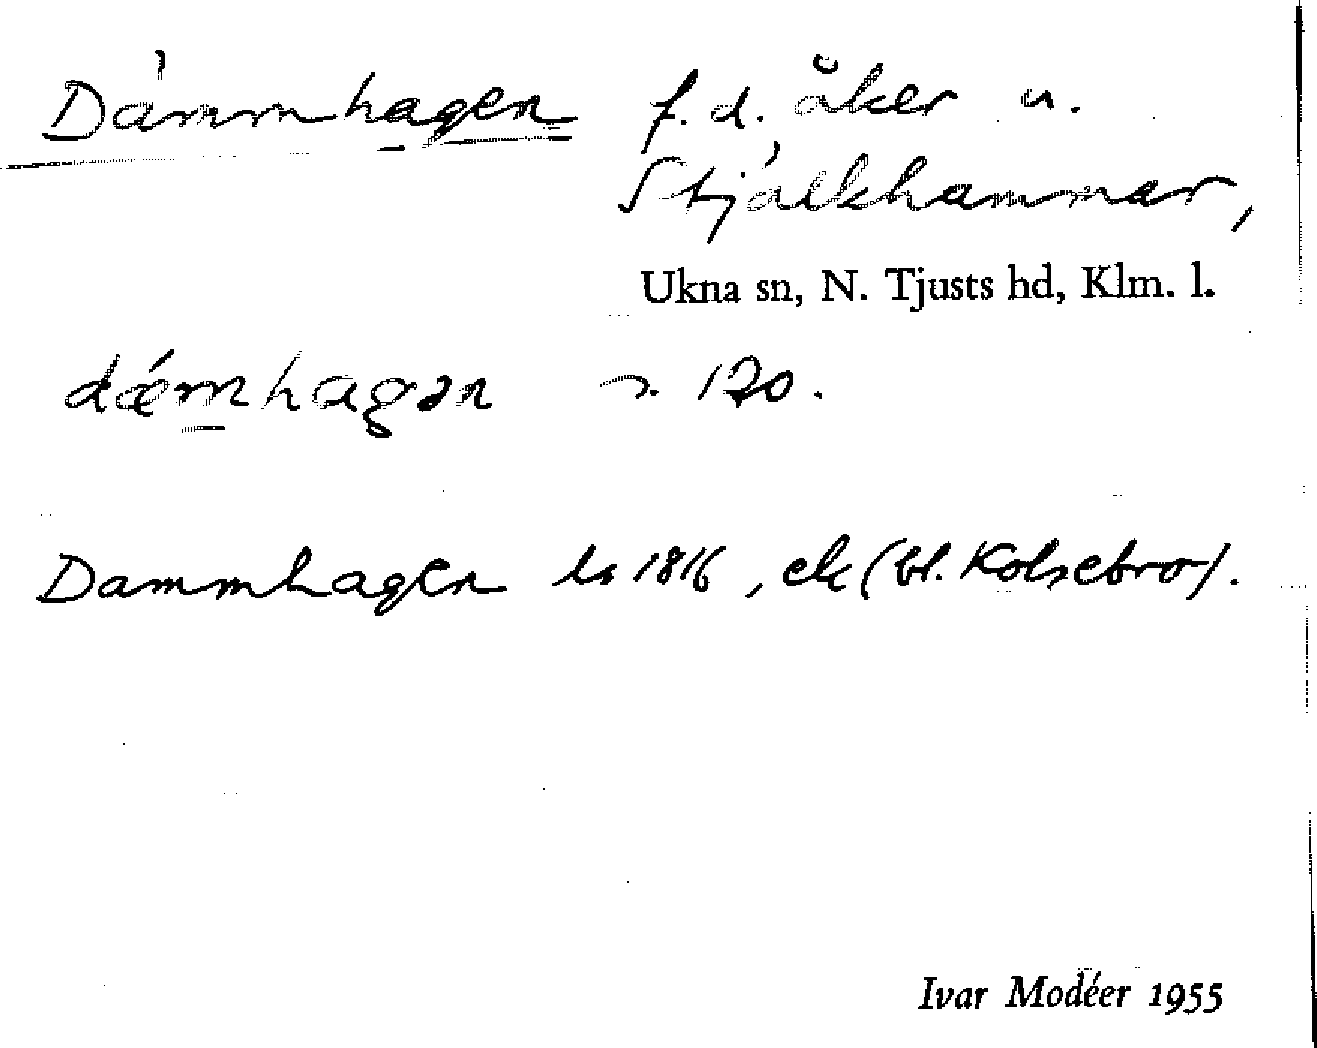 Dammhagen f. d. åker u.
Stjälkhammar,
Ukna sn, N. Tjusts hd, Klm. l.
dǽmhagən n. 170.
Dammhagen ls 1816, ek (bl. Kolsebro).
Ivar Modéer 1955